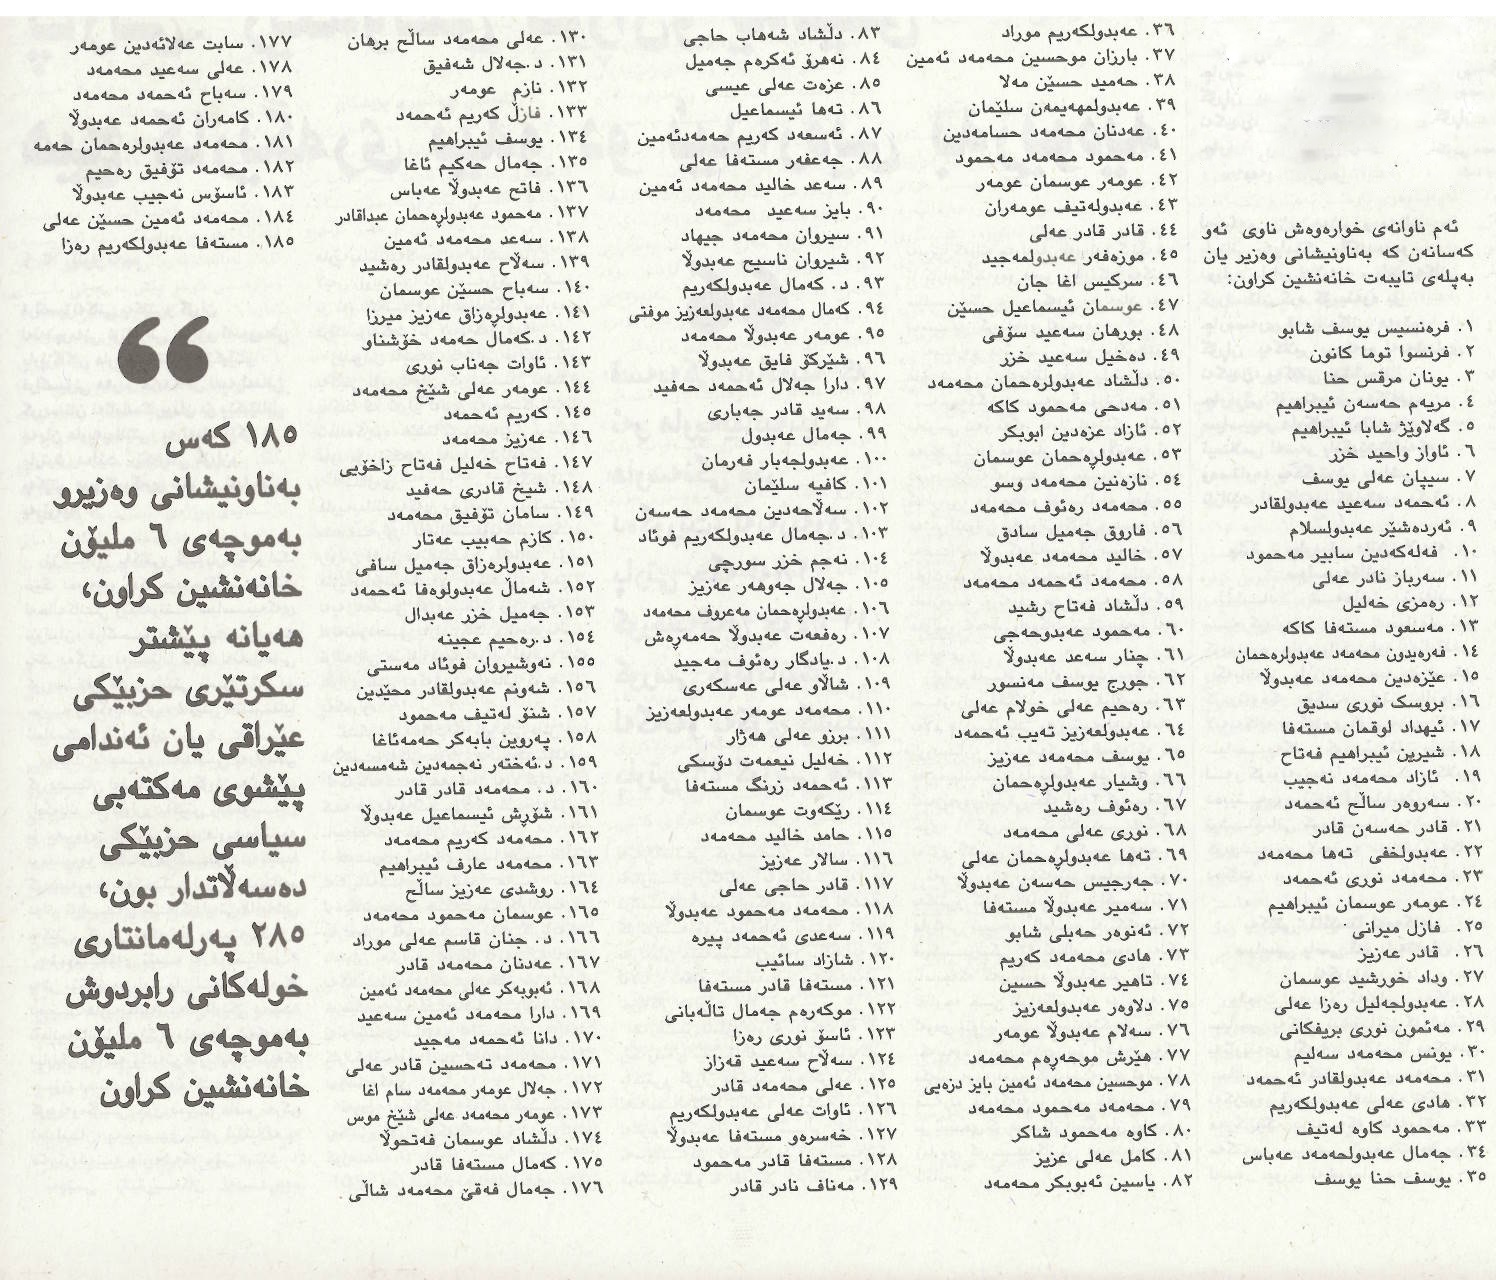 ئەم ناوانەی خوارەوەش ناوی ئەو
کەسانەن کە بەناونیشانی وەزیر یان
بەپلەی تایبەت خانەنشین کراون:
١. فرەنسیس یوسف شابو
٢. فرنسوا توما کانون
٣. یونان مرقس حنا
٤. مریەم حەسەن ئیبراهیم
٥. گەلاوێژ شابا ئیبراهیم
٦. ئاواز واحید خزر
٧. سیپان عەلی یوسف
٨. ئەحمەد سەعید عەبدولقادر
٩. ئەردەشێر عەبدولسلام
١٠. فەلەکەدین سابیر مەحمود
١١. سەرباز نادر عەلی
١٢. رەمزی خەلیل
١٣. مەسعود مستەفا کاکە
١٤. فەرەیدون محەمەد عەبدولرەحمان
١٥. عێزەدین محەمەد عەبدوڵا
١٦. بروسک نوری سدیق
١٧. ئیهداد لوقمان مستەفا
١٨. شیرین ئیبراهیم فەتاح
١٩. ئازاد محەمەد نەجیب
٢٠. سەروەر ساڵح ئەحمەد
٢١. قادر حەسەن قادر
٢٢. عەبدولخفی تەها محەمەد
٢٣. محەمەد نوری ئەحمەد
٢٤. عومەر عوسمان ئیبراهیم
٢٥. فازل میرانی
٢٦. قادر عەزیز
٢٧. وداد خورشید عوسمان
٢٨. عەبدولجەلیل رەزا عەلی
٢٩. مەئمون نوری بریفکانی
٣٠. یونس محەمەد سەلیم
٣١. محەمەد عەبدولقادر ئەحمەد
٣٢. هادی عەلی عەبدولکەریم
٣٣. مەحمود کاوە لەتیف
٣٤. جەمال عەبدولحەمەد عەباس
٣٥. یوسف حنا یوسف
٣٦. عەبدولکەریم موراد
٣٧. بارزان موحسین محەمەد ئەمین
٣٨. حەمید حسێن مەلا
٣٩. عەبدولمهەیمەن سلێمان
٤٠. عەدنان محەمەد حسامەدین
٤١. مەحمود محەمەد مەحمود
٤٢. عومەر عوسمان عومەر
٤٣. عەبدولەتیف عومەران
٤٤. قادر قادر عەلی
٤٥. موزەفەر عەبدولمەجید
٤٦. سرکیس اغا جان
٤٧. عوسمان ئیسماعیل حسێن
٤٨. بورهان سەعید سۆفی
٤٩. دەخیل سەعید خزر
٥٠. دڵشاد عەبدولرەحمان محەمەد
٥١. مەدحی مەحمود کاکە
٥٢. ئازاد عزەدین ابوبکر
٥٣. عەبدولڕەحمان عوسمان
٥٤. نازەنین محەمەد وسو
٥٥. محەمەد رەئوف محەمەد
٥٦. فاروق جەمیل سادق
٥٧. خالید محەمەد عەبدوڵا
٥٨. محەمەد ئەحمەد محەمەد
٥٩. دڵشاد فەتاح رشید
٦٠. مەحمود عەبدوحەجی
٦١. چنار سەعد عەبدوڵا
٦٢. جورج یوسف مەنسور
٦٣. رەحیم عەلی خولام عەلی
٦٤. عەبدولعەزیز تەیب ئەحمەد
٦٥. یوسف محەمەد عەزیز
٦٦. وشیار عەبدولڕەحمان
٦٧. رەئوف رەشید
٦٨. نوری عەلی محەمەد
٦٩. تەها عەبدولڕەحمان عەلی
٧٠. جەرجیس حەسەن عەبدوڵا
٧١. سەمیر عەبدوڵا مستەفا
٧٢. ئەنوەر حەبلی شابو
٧٣. هادی محەمەد کەریم
٧٤. تاهیر عەبدوڵا حسین
٧٥. دلاوەر عەبدولعەزیز
٧٦. سەلام عەبدوڵا عومەر
٧٧. هێرش موحەڕەم محەمەد
٧٨. موحسین محەمەد ئەمین بایز دزەیی
٧٩. محەمەد مەحمود محەمەد
٨٠. کاوە مەحمود شاکر
٨١. کامل عەلی عزیز
٨٢. یاسین ئەبوبکر محەمەد
٨٣. دڵشاد شەهاب حاجی
٨٤. نەهرۆ ئەکرەم جەمیل
٨٥. عزەت عەلی عیسی
٨٦. تەها ئیسماعیل
٨٧. ئەسعەد کەریم حەمەدئەمین
٨٨. جەعفەر مستەفا عەلی
٨٩. سەعد خالید محەمەد ئەمین
٩٠. بایز سەعید محەمەد
٩١. سیروان محەمەد جیهاد
٩٢. شیروان ناسیح عەبدوڵا
٩٣. د. کەمال عەبدولکەریم
٩٤. کەمال محەمەد عەبدولعەزیز موفتی
٩٥. عومەر عەبدوڵا محەمەد
٩٦. شێرکۆ فایق عەبدوڵا
٩٧. دارا جەلال ئەحمەد حەفید
٩٨. سەید قادر جەباری
٩٩. جەمال عەبدول
١٠٠. عەبدولجەبار فەرمان
١٠١. کافیە سلێمان
١٠٢. سەڵاحەدین محەمەد حەسەن
١٠٣. د.جەمال عەبدولکەریم فوئاد
١٠٤. نەجم خزر سورچی
١٠٥. جەلال جەوهەر عەزیز
١٠٦. عەبدولڕەحمان مەعروف محەمەد
١٠٧. رەفعەت عەبدوڵا حەمەڕەش
١٠٨. د.یادگار رەئوف مەجید
١٠٩. شاڵاو عەلی عەسکەری
١١٠. محەمەد عومەر عەبدولعەزیز
١١١. برزو عەلی هەژار
١١٢. خەلیل نیعمەت دۆسکی
١١٣. ئەحمەد زرنگ مستەفا
١١٤. رێکەوت عوسمان
١١٥. حامد خالید محەمەد
١١٦. سالار عەزیز
١١٧. قادر حاجی عەلی
١١٨. محەمەد مەحمود عەبدوڵا
١١٩. سەعدی ئەحمەد پیرە
١٢٠. شازاد سائیب
١٢١. مستەفا قادر مستەفا
١٢٢. موکەرەم جەمال تاڵەبانی
١٢٣. ئاسۆ نوری رەزا
١٢٤. سەڵاح سەعید قەزاز
١٢٥. عەلی محەمەد قادر
١٢٦. ئاوات عەلی عەبدولکەریم
١٢٧. خەسرەو مستەفا عەبدوڵا
١٢٨. مستەفا قادر مەحمود
١٢٩. مەناف نادر قادر
١٣٠. عەلی محەمەد ساڵح برهان
١٣١. د.جەلال شەفیق
١٣٢. نازم عومەر
١٣٣. فازڵ کەریم ئەحمەد
١٣٤. یوسف ئیبراهیم
١٣٥. جەمال حەکیم ئاغا
١٣٦. فاتح عەبدوڵا عەباس
١٣٧. مەحمود عەبدولڕەحمان عبداقادر
١٣٨. سەعد محەمەد ئەمین
١٣٩. سەڵاح عەبدولقادر رەشید
١٤٠. سەباح حسێن عوسمان
١٤١. عەبدولڕەزاق عەزیز میرزا
١٤٢. د.کەمال حەمەد خۆشناو
١٤٣. ئاوات جەناب نوری
١٤٤. عومەر عەلی شێخ محەمەد
١٤٥. کەریم ئەحمەد
١٤٦. عەزیز محەمەد
١٤٧. فەتاح خەلیل فەتاح زاخۆیی
١٤٨. شیخ قادری حەفید
١٤٩. سامان تۆفیق محەمەد
١٥٠. کازم حەبیب عەتار
١٥١. عەبدولرەزاق جەمیل سافی
١٥٢. شەماڵ عەبدولوەفا ئەحمەد
١٥٣. جەمیل خزر عەبدال
١٥٤. د.رەحیم عجینە
١٥٥. نەوشیروان فوئاد مەستی
١٥٦. شەونم عەبدولقادر محێدین
١٥٧. شنۆ لەتیف مەحمود
١٥٨. پەروین بابەکر حەمەئاغا
١٥٩. د.ئەختەر نەجمەدین شەمسەدین
١٦٠. د. محەمەد قادر قادر
١٦١. شۆڕش ئیسماعیل عەبدوڵا
١٦٢. محەمەد کەریم محەمەد
١٦٣. محەمەد عارف ئیبراهیم
١٦٤. روشدی عەزیز ساڵح
١٦٥. عوسمان مەحمود محەمەد
١٦٦. د. جنان قاسم عەلی موراد
١٦٧. عەدنان محەمەد قادر
١٦٨. ئەبوبەکر عەلی محەمەد ئەمین
١٦٩. دارا محەمەد ئەمین سەعید
١٧٠. دانا ئەحمەد مەجید
١٧١. محەمەد تەحسین قادر عەلی
١٧٢. جەلال عومەر محەمەد سام اغا
١٧٣. عومەر محەمەد عەلی شێخ موس
١٧٤. دڵشاد عوسمان فەتحوڵا
١٧٥. کەمال مستەفا قادر
١٧٦. جەمال فەقێ محەمەد شاڵی
١٧٧. سابت عەلائەدین عومەر
١٧٨. عەلی سەعید محەمەد
١٧٩. سەباح ئەحمەد محەمەد
١٨٠. کامەران ئەحمەد عەبدوڵا
١٨١. محەمەد عەبدولرەحمان حەمە
١٨٢. محەمەد تۆفیق رەحیم
١٨٣. ئاسۆس نەجیب عەبدوڵا
١٨٤. محەمەد ئەمین حسێن عەلی
١٨٥. مستەفا عەبدولکەریم رەزا
❝
١٨٥ کەس
بەناونیشانی وەزیرو
بەموچەی ٦ ملیۆن
خانەنشین کراون،
هەیانە پێشتر
سکرتێری حزبێکی
عێراقی یان ئەندامی
پێشوی مەکتەبی
سیاسی حزبێکی
دەسەڵاتدار بون،
٢٨٥ پەرلەمانتاری
خولەکانی رابردوش
بەموچەی ٦ ملیۆن
خانەنشین کراون